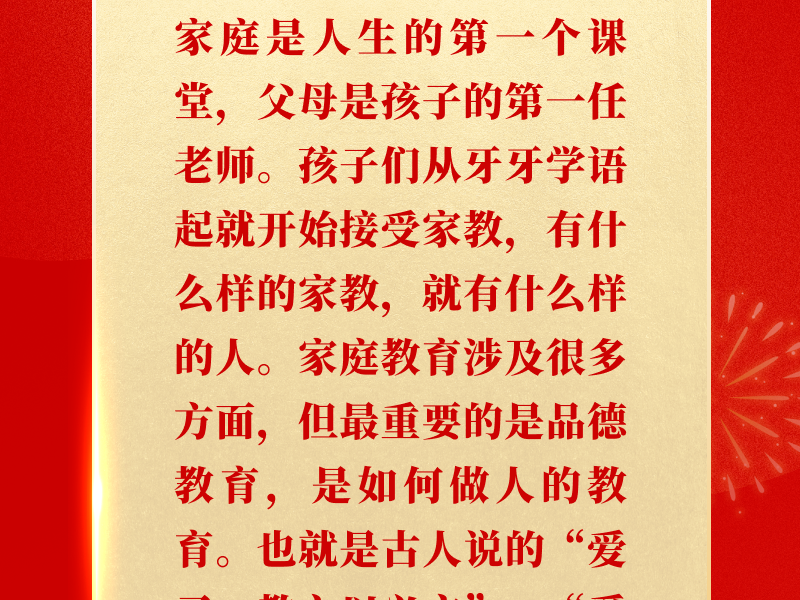 家庭是人生的第一个课
堂，父母是孩子的第一任
老师。孩子们从牙牙学语
起就开始接受家教，有什
么样的家教，就有什么样
的人。家庭教育涉及很多
方面，但最重要的是品德
教育，是如何做人的教
育。也就是古人说的“爱